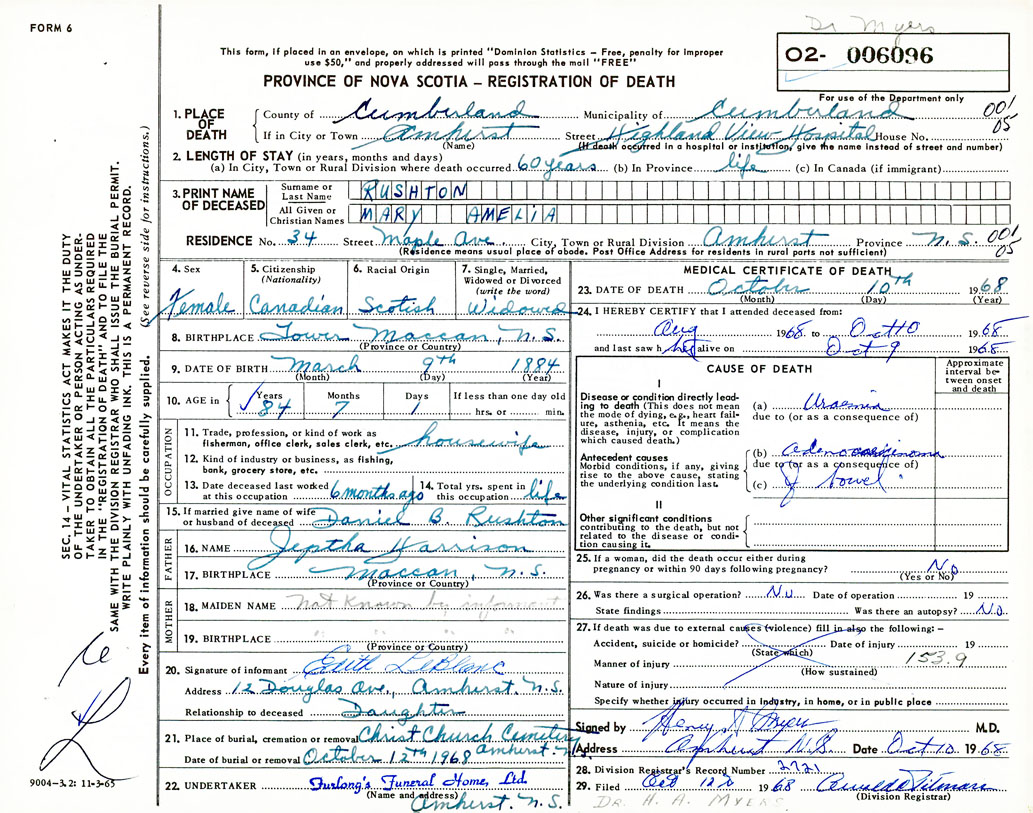 FORM 6
Dr Myers
This form, if placed in an envelope, on which is printed "Dominion Statistics – Free, penalty for improper
use $50," and properly addressed will pass through the mail "FREE"
O2- 006096
PROVINCE OF NOVA SCOTIA – REGISTRATION OF DEATH
For use of the Department only
1. PLACE OF DEATH
County of Cumberland Municipality of Cumberland 001
If in City or Town Amherst Street Highland View Hospital House No. 05
(Name) (If death occurred in a hospital or institution, give the name instead of street and number)
2. LENGTH OF STAY (in years, months and days)
(a) In City, Town or Rural Division where death occurred 60 years (b) In Province life (c) In Canada (if immigrant)
3. PRINT NAME OF DECEASED
Surname or Last Name RUSHTON
All Given or Christian Names MARY AMELIA
RESIDENCE No. 34 Street Maple Ave. City, Town or Rural Division Amherst Province N.S. 001
(Residence means usual place of abode. Post Office Address for residents in rural parts not sufficient) 05
4. Sex
Female
5. Citizenship
(Nationality)
Canadian
6. Racial Origin
Scotish
7. Single, Married,
Widowed or Divorced
(write the word)
Widowed
8. BIRTHPLACE Lower Maccan, N.S.
(Province or Country)
9. DATE OF BIRTH March 9th 1884
(Month) (Day) (Year)
10. AGE in Years Months Days If less than one day old
84 7 1 hrs. or min.
OCCUPATION
11. Trade, profession, or kind of work as
fisherman, office clerk, sales clerk, etc. housewife
12. Kind of industry or business, as fishing,
bank, grocery store, etc.
13. Date deceased last worked
at this occupation 6 months ago
14. Total yrs. spent in
this occupation life
15. If married give name of wife
or husband of deceased Daniel B. Rushton
FATHER
16. NAME Jeptha Harrison
17. BIRTHPLACE Maccan, N.S.
(Province or Country)
MOTHER
18. MAIDEN NAME Not Known by informant
19. BIRTHPLACE " " " "
(Province or Country)
20. Signature of informant Edith LeBlanc
Address 12 Douglas Ave., Amherst. N.S.
Relationship to deceased Daughter
21. Place of burial, cremation or removal Christ Church Cemetery
Amherst N.S.
Date of burial or removal October 12th 1968
22. UNDERTAKER Furlong's Funeral Home, Ltd.
(Name and address)
Amherst. N.S.
MEDICAL CERTIFICATE OF DEATH
23. DATE OF DEATH October 10th 1968
(Month) (Day) (Year)
24. I HEREBY CERTIFY that I attended deceased from:
Aug 1968 to Oct 10 1968
and last saw her alive on Oct 9 1968
CAUSE OF DEATH
Approximate
interval be-
tween onset
and death
I
Disease or condition directly lead-
ing to death (This does not mean
the mode of dying, e.g., heart fail-
ure, asthenia, etc. It means the
disease, injury, or complication
which caused death.)
(a) Uraemia
due to (or as a consequence of)
Antecedent causes
Morbid conditions, if any, giving
rise to the above cause, stating
the underlying condition last.
(b) adenocarcinoma
due to (or as a consequence of)
(c) of bowel
II
Other significant conditions
contributing to the death, but not
related to the disease or condi-
tion causing it.
25. If a woman, did the death occur either during
pregnancy or within 90 days following pregnancy? No
(Yes or No)
26. Was there a surgical operation? No Date of operation 19
State findings Was there an autopsy? No
27. If death was due to external causes (violence) fill in also the following: –
Accident, suicide or homicide? Date of injury 19
(State which) 153.9
Manner of injury
(How sustained)
Nature of injury
Specify whether injury occurred in industry, in home, or in public place
Signed by Henry A Myers M.D.
Address Amherst N.S. Date Oct 10 1968
28. Division Registrar's Record Number 3721
29. Filed Oct 12 1968
(Division Registrar)
DR. H. A. MYERS.
SEC. 14 – VITAL STATISTICS ACT MAKES IT THE DUTY
OF THE UNDERTAKER OR PERSON ACTING AS UNDER-
TAKER TO OBTAIN ALL THE PARTICULARS REQUIRED
IN THE "REGISTRATION OF DEATH" AND TO FILE THE
SAME WITH THE DIVISION REGISTRAR WHO SHALL ISSUE THE BURIAL PERMIT.
WRITE PLAINLY WITH UNFADING INK. THIS IS A PERMANENT RECORD.
Every item of information should be carefully supplied. (See reverse side for instructions.)
9004–3.2: 11-3-65